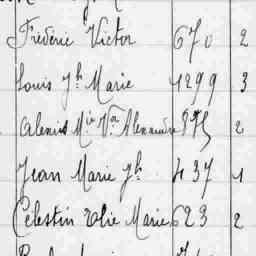 Frédéric Victor 670 2
Louis Jh Marie 1299 3
Mie Vor Alexandre 875 2
Jean Marie Jh 437 1
Célestin Elie Marie 623 2